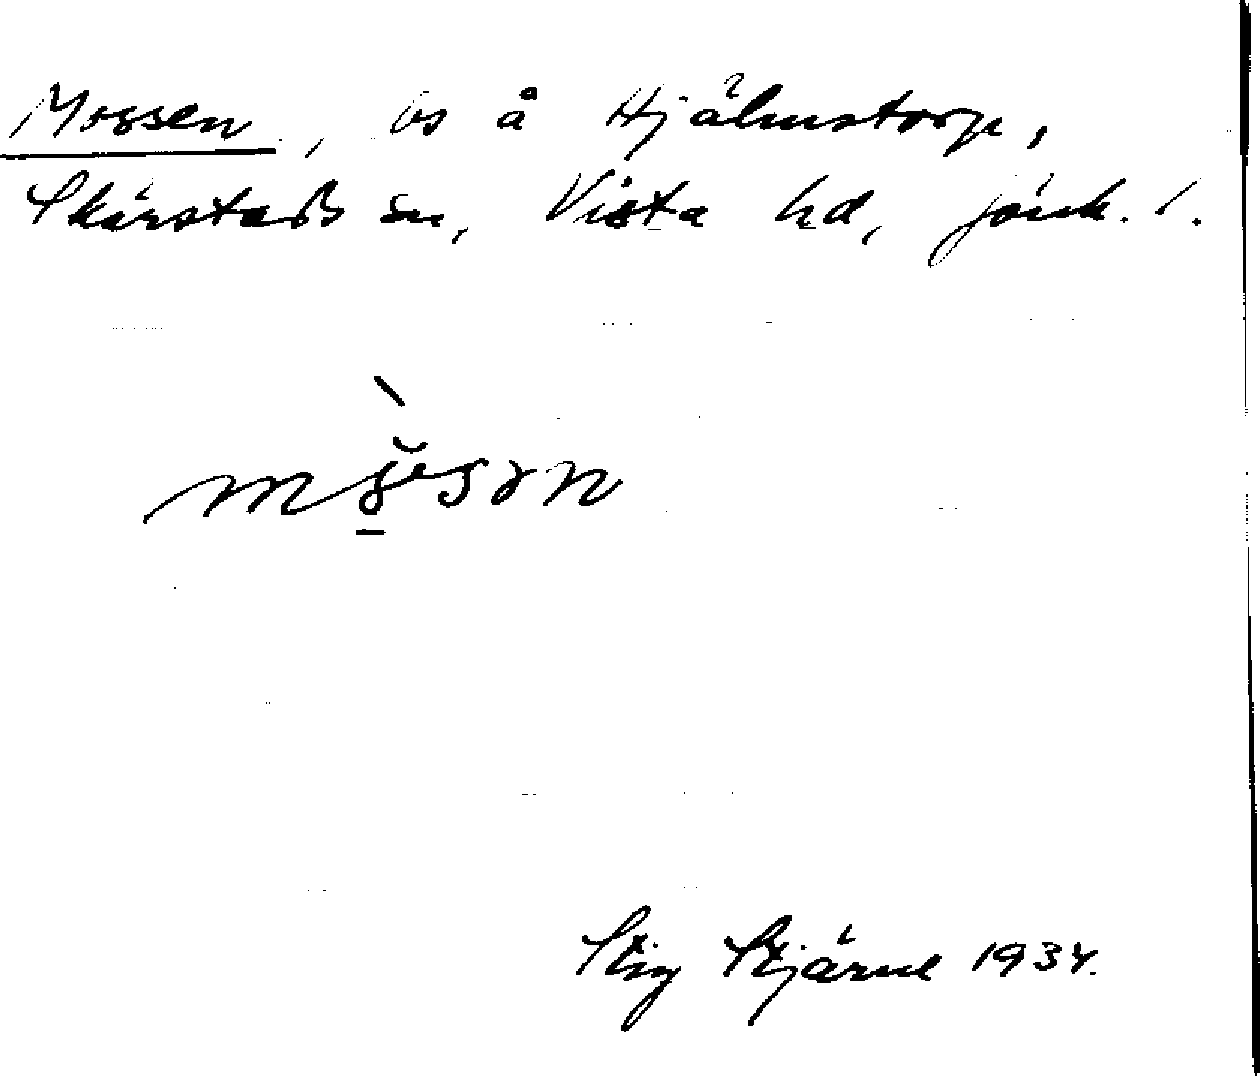 Mossen, bs å Hjälmstorp,
Skärstads sn, Vista hd, Jönk. l.
Stig Stjärne 1934.